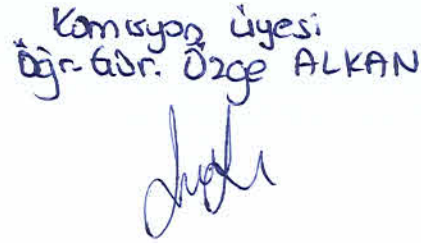 Komisyon üyesi
Öğr. Gör. Özge ALKAN